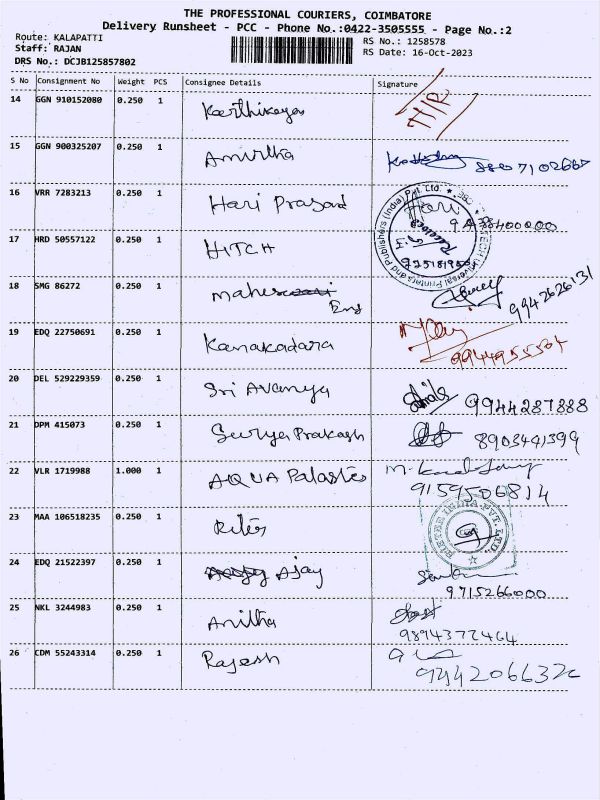 THE PROFESSIONAL COURIERS, COIMBATORE
Delivery Runsheet - PCC - Phone No.:0422-3505555 - Page No.:2
Route: KALAPATTI
RS No.: 1258578
Staff: RAJAN
RS Date: 16-Oct-2023
DRS No.: DCJB125857802
S No Consignment No Weight PCS Consignee Details Signature
14 GGN 910152080 0.250 1 Karthikeya
15 GGN 900325207 0.250 1 Amirtha
16 VRR 7283213 0.250 1 Hari Prasad Hari
17 HRD 50557122 0.250 1 HITCH
18 SMG 86272 0.250 1 Eng 9942626131
19 EDQ 22750691 0.250 1 Kanakadara 9944955504
20 DEL 529229359 0.250 1 Sri Avanya 9944287888
21 DPM 415073 0.250 1 Surya Prakash 8903441399
22 VLR 1719988 1.000 1 AQUA 9159506814
23 MAA 106518235 0.250 1
24 EDQ 21522397 0.250 1 Ajay 9715266000
25 NKL 3244983 0.250 1 Anitha 9894372464
26 CDM 55243314 0.250 1 Rajesh